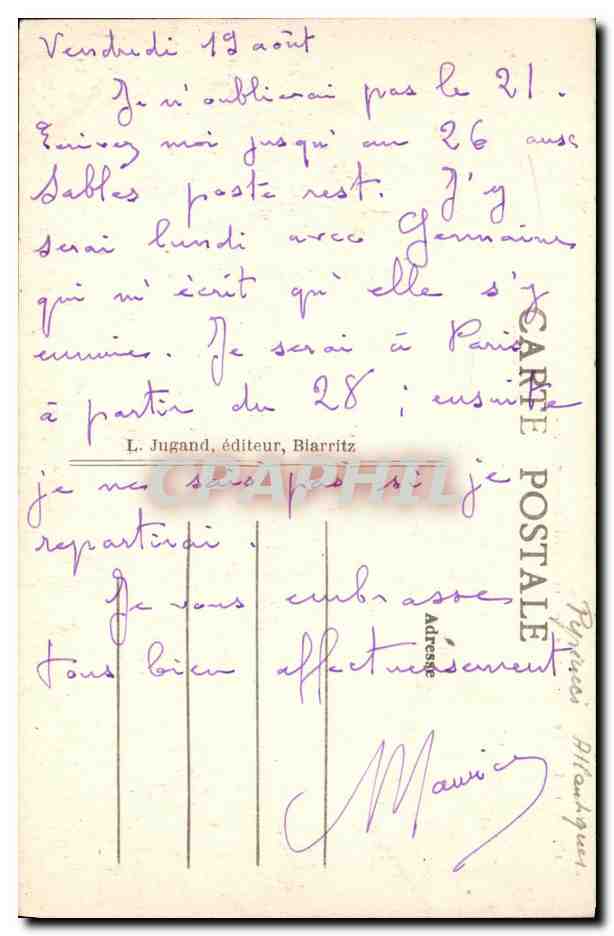 Vendredi 19 août
Je n'oublierai pas le 21.
Ecrivez moi jusqu'au 26 aux
Sables poste rest. J'y
serai lundi avec Germaine
qui m'écrit qu'elle s'y
ennuie. Je serai à Paris
à partir du 28 ; ensuite
L. Jugand, éditeur, Biarritz
CPAPHIL
je ne sais pas si je
repartirai.
Je vous embrasse
tous bien affectueusement
Maurice
CARTE POSTALE
Adresse
Pyrénées Atlantiques.